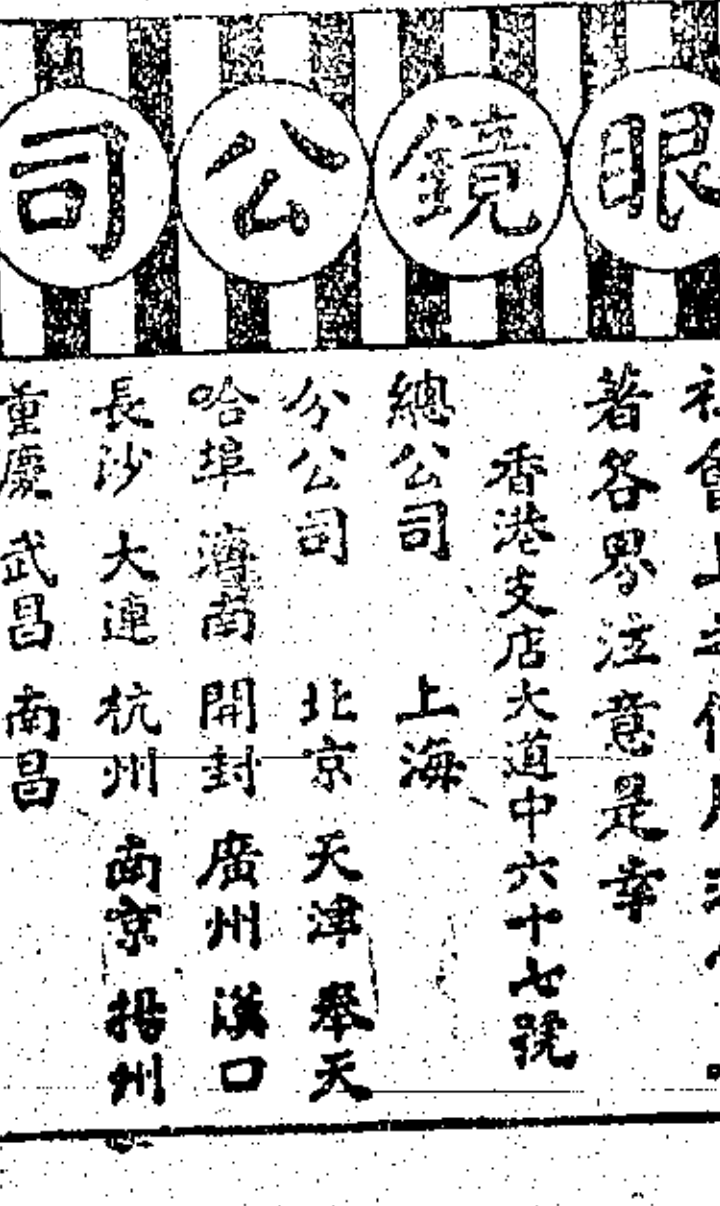 眼鏡公司
著各界注意是幸
香港支店大道中六十七號
總公司 上海
分公司 北京 天津 奉天
哈埠 濟南 開封 廣州 漢口
長沙 大連 杭州 南京 揚州
重慶 武昌 南昌